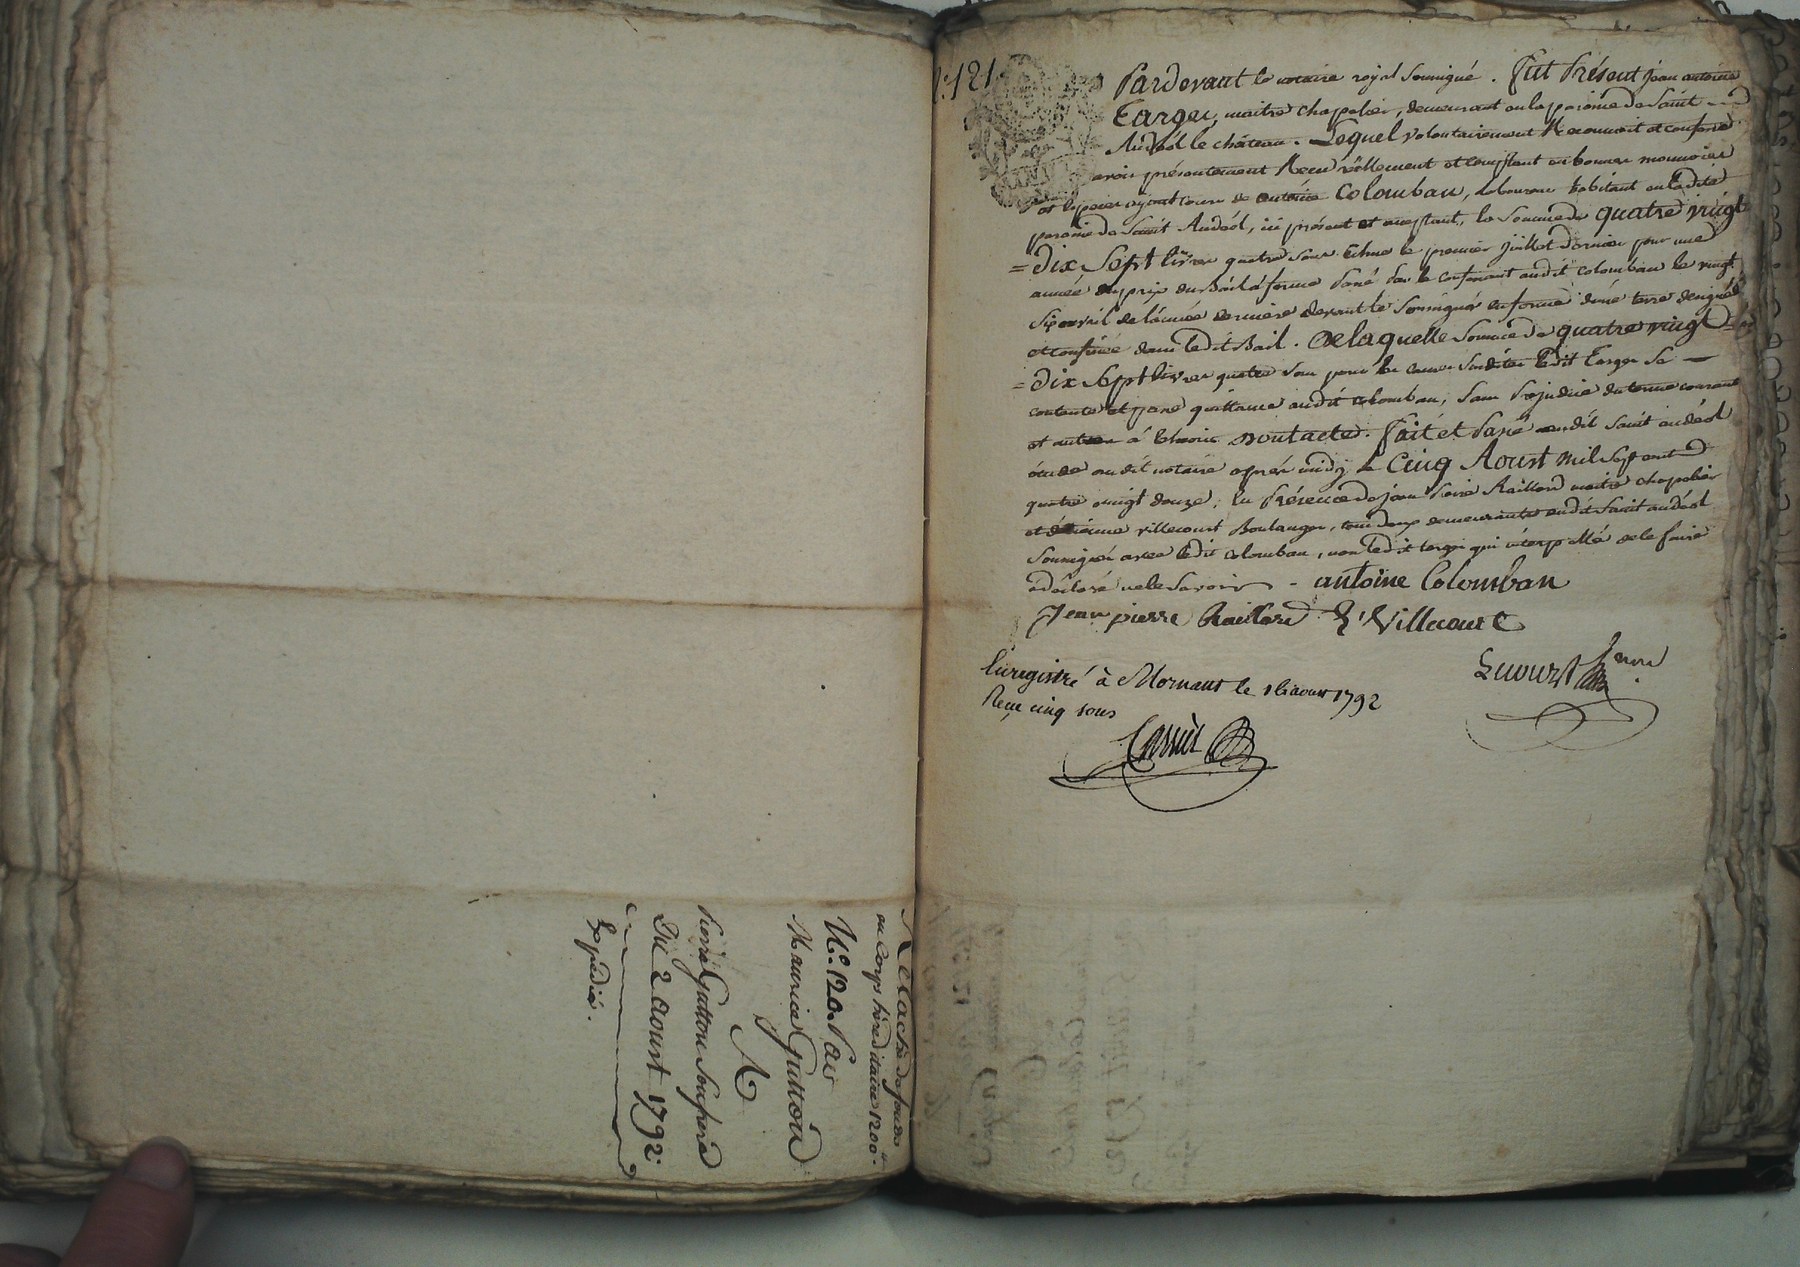 Relaché de fondes
au Corps héreditaire 1200tt.
N.o 120. Par
Maurice Gutton
A
Pierre Gutton Son frere
Du 2 aoust 1792.
Expédié.
N.o 121
Pardevant le notaire royal Soussigné. Fut Présent jean antoine
Targer, maitre chapelier, demeurant en la paroisse de Saint
Andéol le château. Lequel volontairement Reconnoit et confesse
avoir présentement Receu réellement et comptant en bonnes monnoies
et especes ayant cours de antoine Colomban, laboureur habitant en ladite
paroisse de Saint Andéol, ici présent et acceptant, la Somme de quatre vingt
= dix Sept livres quatre sous Echue le premier juillet dernier pour une
année du prix du Bail à ferme Passé Par le confessant audit colomban le vingt
Six avril de l'année derniere devant le Soussigné en forme d'une terre designée
et confinée dans ledit Bail. De laquelle Somme de quatre vingt
= dix Sept livres quatre Sous pour les causes Susdites ledit Targer Se
contente et passe quittance audit colomban, Sans Préjudice du terme courant
et autres à Echoir. dont acte. Fait et Passé audit Saint andéol
étude dudit notaire après midy le Cinq Aoust mil Sept cent
quatre vingt douze; En Présence de jean Pierre Raillard maitre chapelier
et étienne villecourt Boulanger, tous deux demeurants audit Saint andéol
Soussignés avec ledit colomban, non ledit targer qui interpellé de le faire
a déclaré ne le Savoir. antoine Colomban
Jean pierre Raillard E. Villecourt
Enregistré à Mornant le 16 aoust 1792
Reçu cinq sous